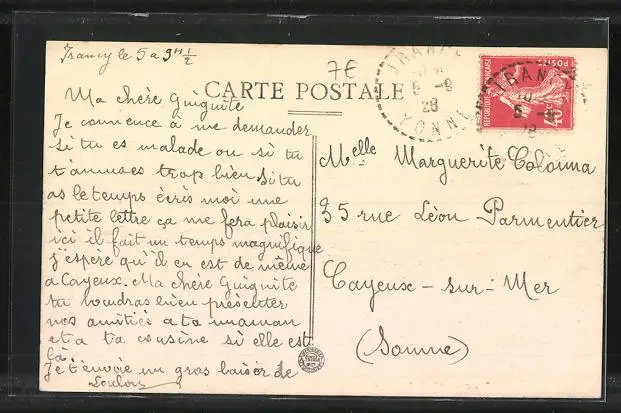 Irancy le 5 a 9H 1/2
7E
CARTE POSTALE
IRANCY
5 -8
28
YONNE
REPUBLIQUE FRANÇAISE
POSTES
40c
Ma chère Guiguite
Je commence à me demander
si tu es malade ou si tu
t'amuses trop bien Si tu
as le temps écris moi une
petite lettre ça me fera plaisir
ici il fait un temps magnifique
j'espère qu'il en est de même
a Cayeux. Ma chère Guiguite
tu voudras bien présenter
nos amitiés a ta maman
et a ta cousine si elle est
là.
Je t'envoie un gros baiser de
Loulou
Melle Marguerite Colonna
35 rue Léon Parmentier
Cayeux-sur-Mer
(Somme)